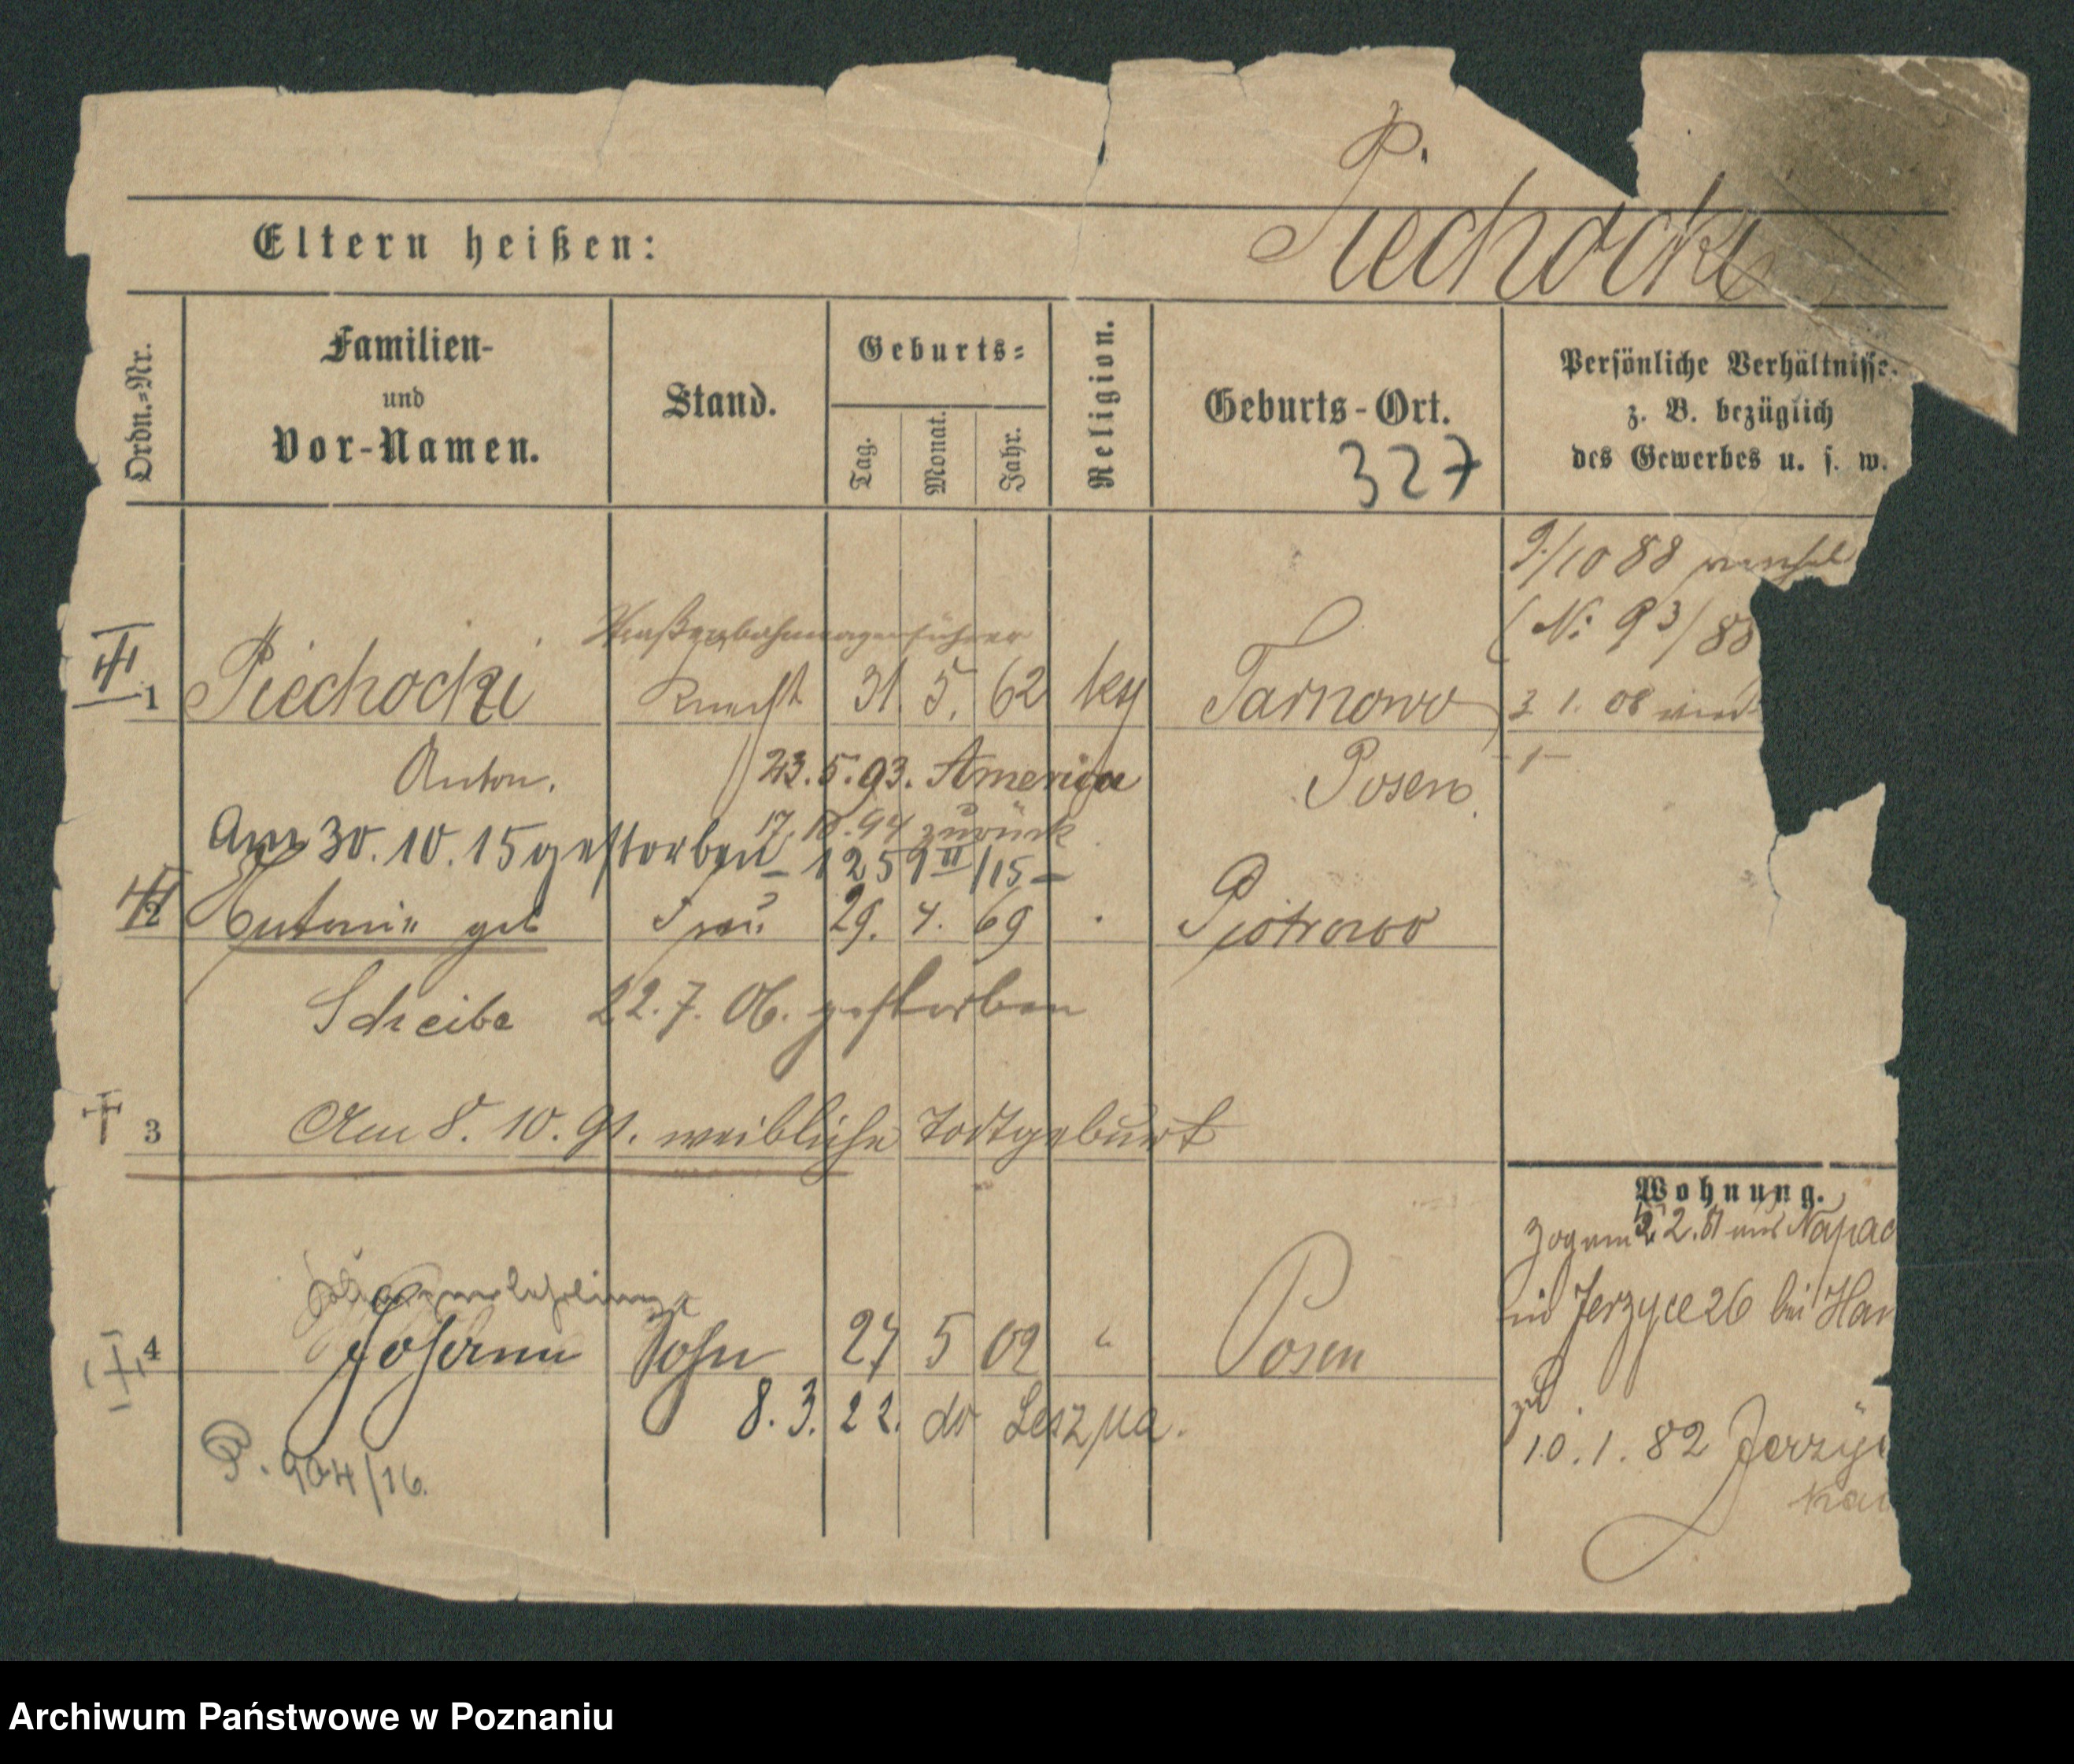 P.
Eltern heißen: Piechocki
Ordn.-Nr.
Familien-
und
Vor-Namen.
Stand.
Geburts-
Tag.
Monat.
Jahr.
Religion.
Geburts-Ort.
327
Persönliche Verhältnisse.
z. B. bezüglich
des Gewerbes u. s. w.
9/10 88
(No 93/88
Straßenbahnwagenführer
1 Piechocki Knecht 31. 5. 62 kth Tarnowo 1. 08
Anton. 23. 5. 93. America Posen
17. 94 zurück
Am 30. 10. 15 gestorben - 1259 II/15 -
2 Antonie geb Frau 29. 4. 69 Piotrowo
Scheibe 22. 7. 06. gestorben
3 Am 8. 10. 91. weibliche Todtgeburt
Wohnung.
Zog am 2. aus Napac
in Jerzyce 26 bei Han
4 Johann Sohn 27 5 02 " Posen
8. 3. 22. do Leszna.
10. 1. 82 Jerzy
P. 904/16.
Archiwum Państwowe w Poznaniu